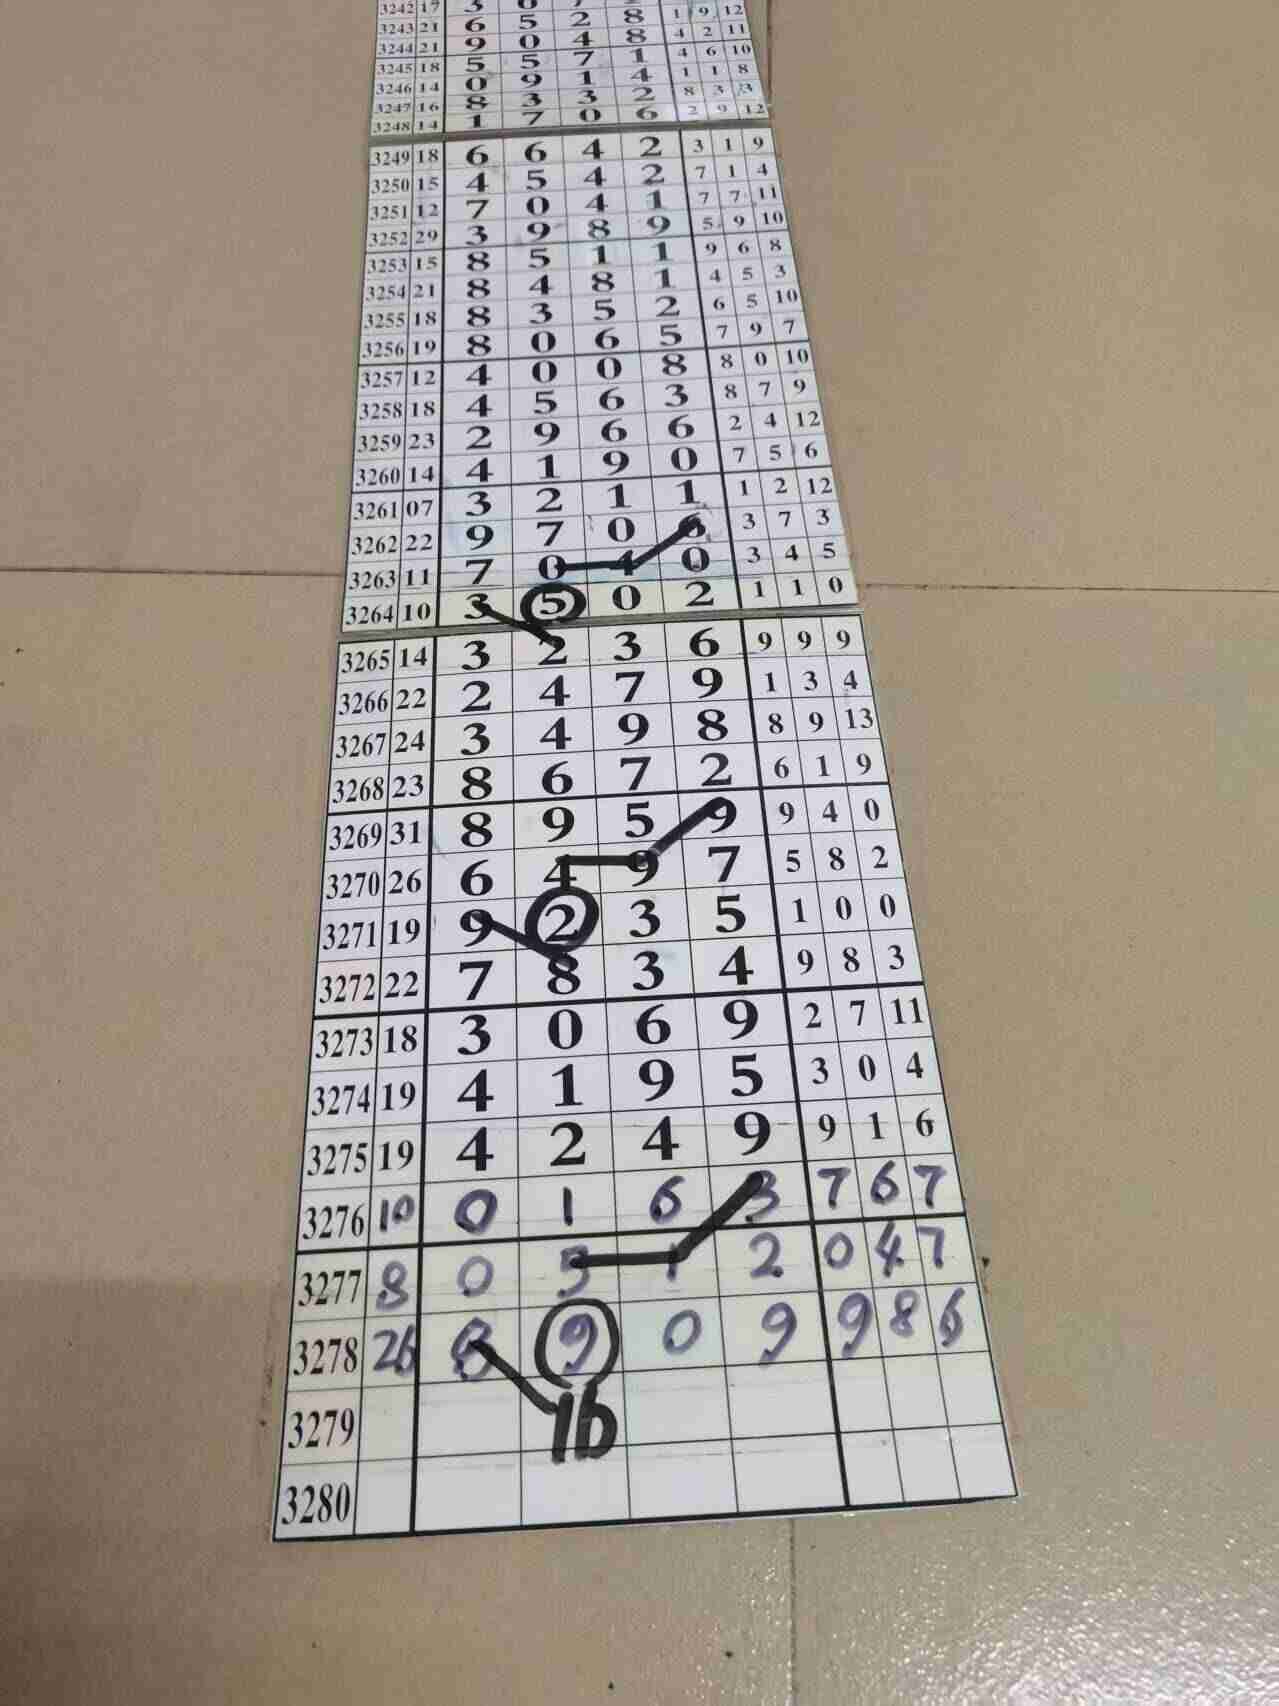 3242 17 3
3243 21 6 5 2 8 1 9 12
3244 21 9 0 4 8 4 2 11
3245 18 5 5 7 1 4 6 10
3246 14 0 9 1 4 1 1 8
3247 16 8 3 3 2 8 3 3
3248 14 1 7 0 6 2 9 12
3249 18 6 6 4 2 3 1 9
3250 15 4 5 4 2 7 1 4
3251 12 7 0 4 1 7 7 11
3252 29 3 9 8 9 5 9 10
3253 15 8 5 1 1 9 6 8
3254 21 8 4 8 1 4 5 3
3255 18 8 3 5 2 6 5 10
3256 19 8 0 6 5 7 9 7
3257 12 4 0 0 8 8 0 10
3258 18 4 5 6 3 8 7 9
3259 23 2 9 6 6 2 4 12
3260 14 4 1 9 0 7 5 6
3261 07 3 2 1 1 1 2 12
3262 22 9 7 0 6 3 7 3
3263 11 7 0 4 0 3 4 5
3264 10 3 5 0 2 1 1 0
3265 14 3 2 3 6 9 9 9
3266 22 2 4 7 9 1 3 4
3267 24 3 4 9 8 8 9 13
3268 23 8 6 7 2 6 1 9
3269 31 8 9 5 9 9 4 0
3270 26 6 4 9 7 5 8 2
3271 19 9 2 3 5 1 0 0
3272 22 7 8 3 4 9 8 3
3273 18 3 0 6 9 2 7 11
3274 19 4 1 9 5 3 0 4
3275 19 4 2 4 9 9 1 6
3276 10 0 1 6 3 7 6 7
3277 8 0 5 1 2 0 4 7
3278 26 8 9 0 9 9 8 6
3279 16
3280